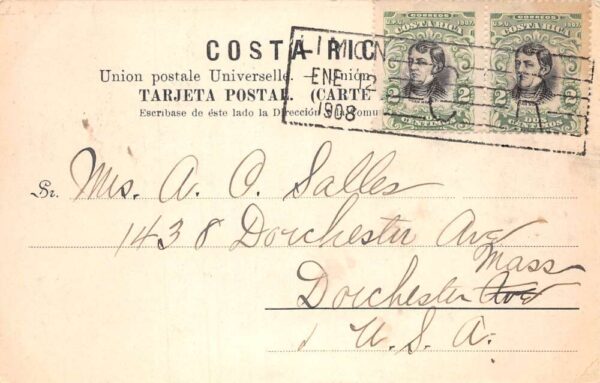 COSTA RIC
Union postale Universelle. — Unión
TARJETA POSTAL. (CARTE
Escríbase de éste lado la Dirección
LIMON
ENE 2
1908
CORREOS
U.P.U. 1907
COSTA RICA
2 2
DOS
CENTIMOS
CORREOS
U.P.U. 1907
COSTA RICA
2 2
DOS
CENTIMOS
Sr. Mrs. A. C. Salles
1438 Dorchester Ave
Mass
Dorchester Ave
U.S.A.